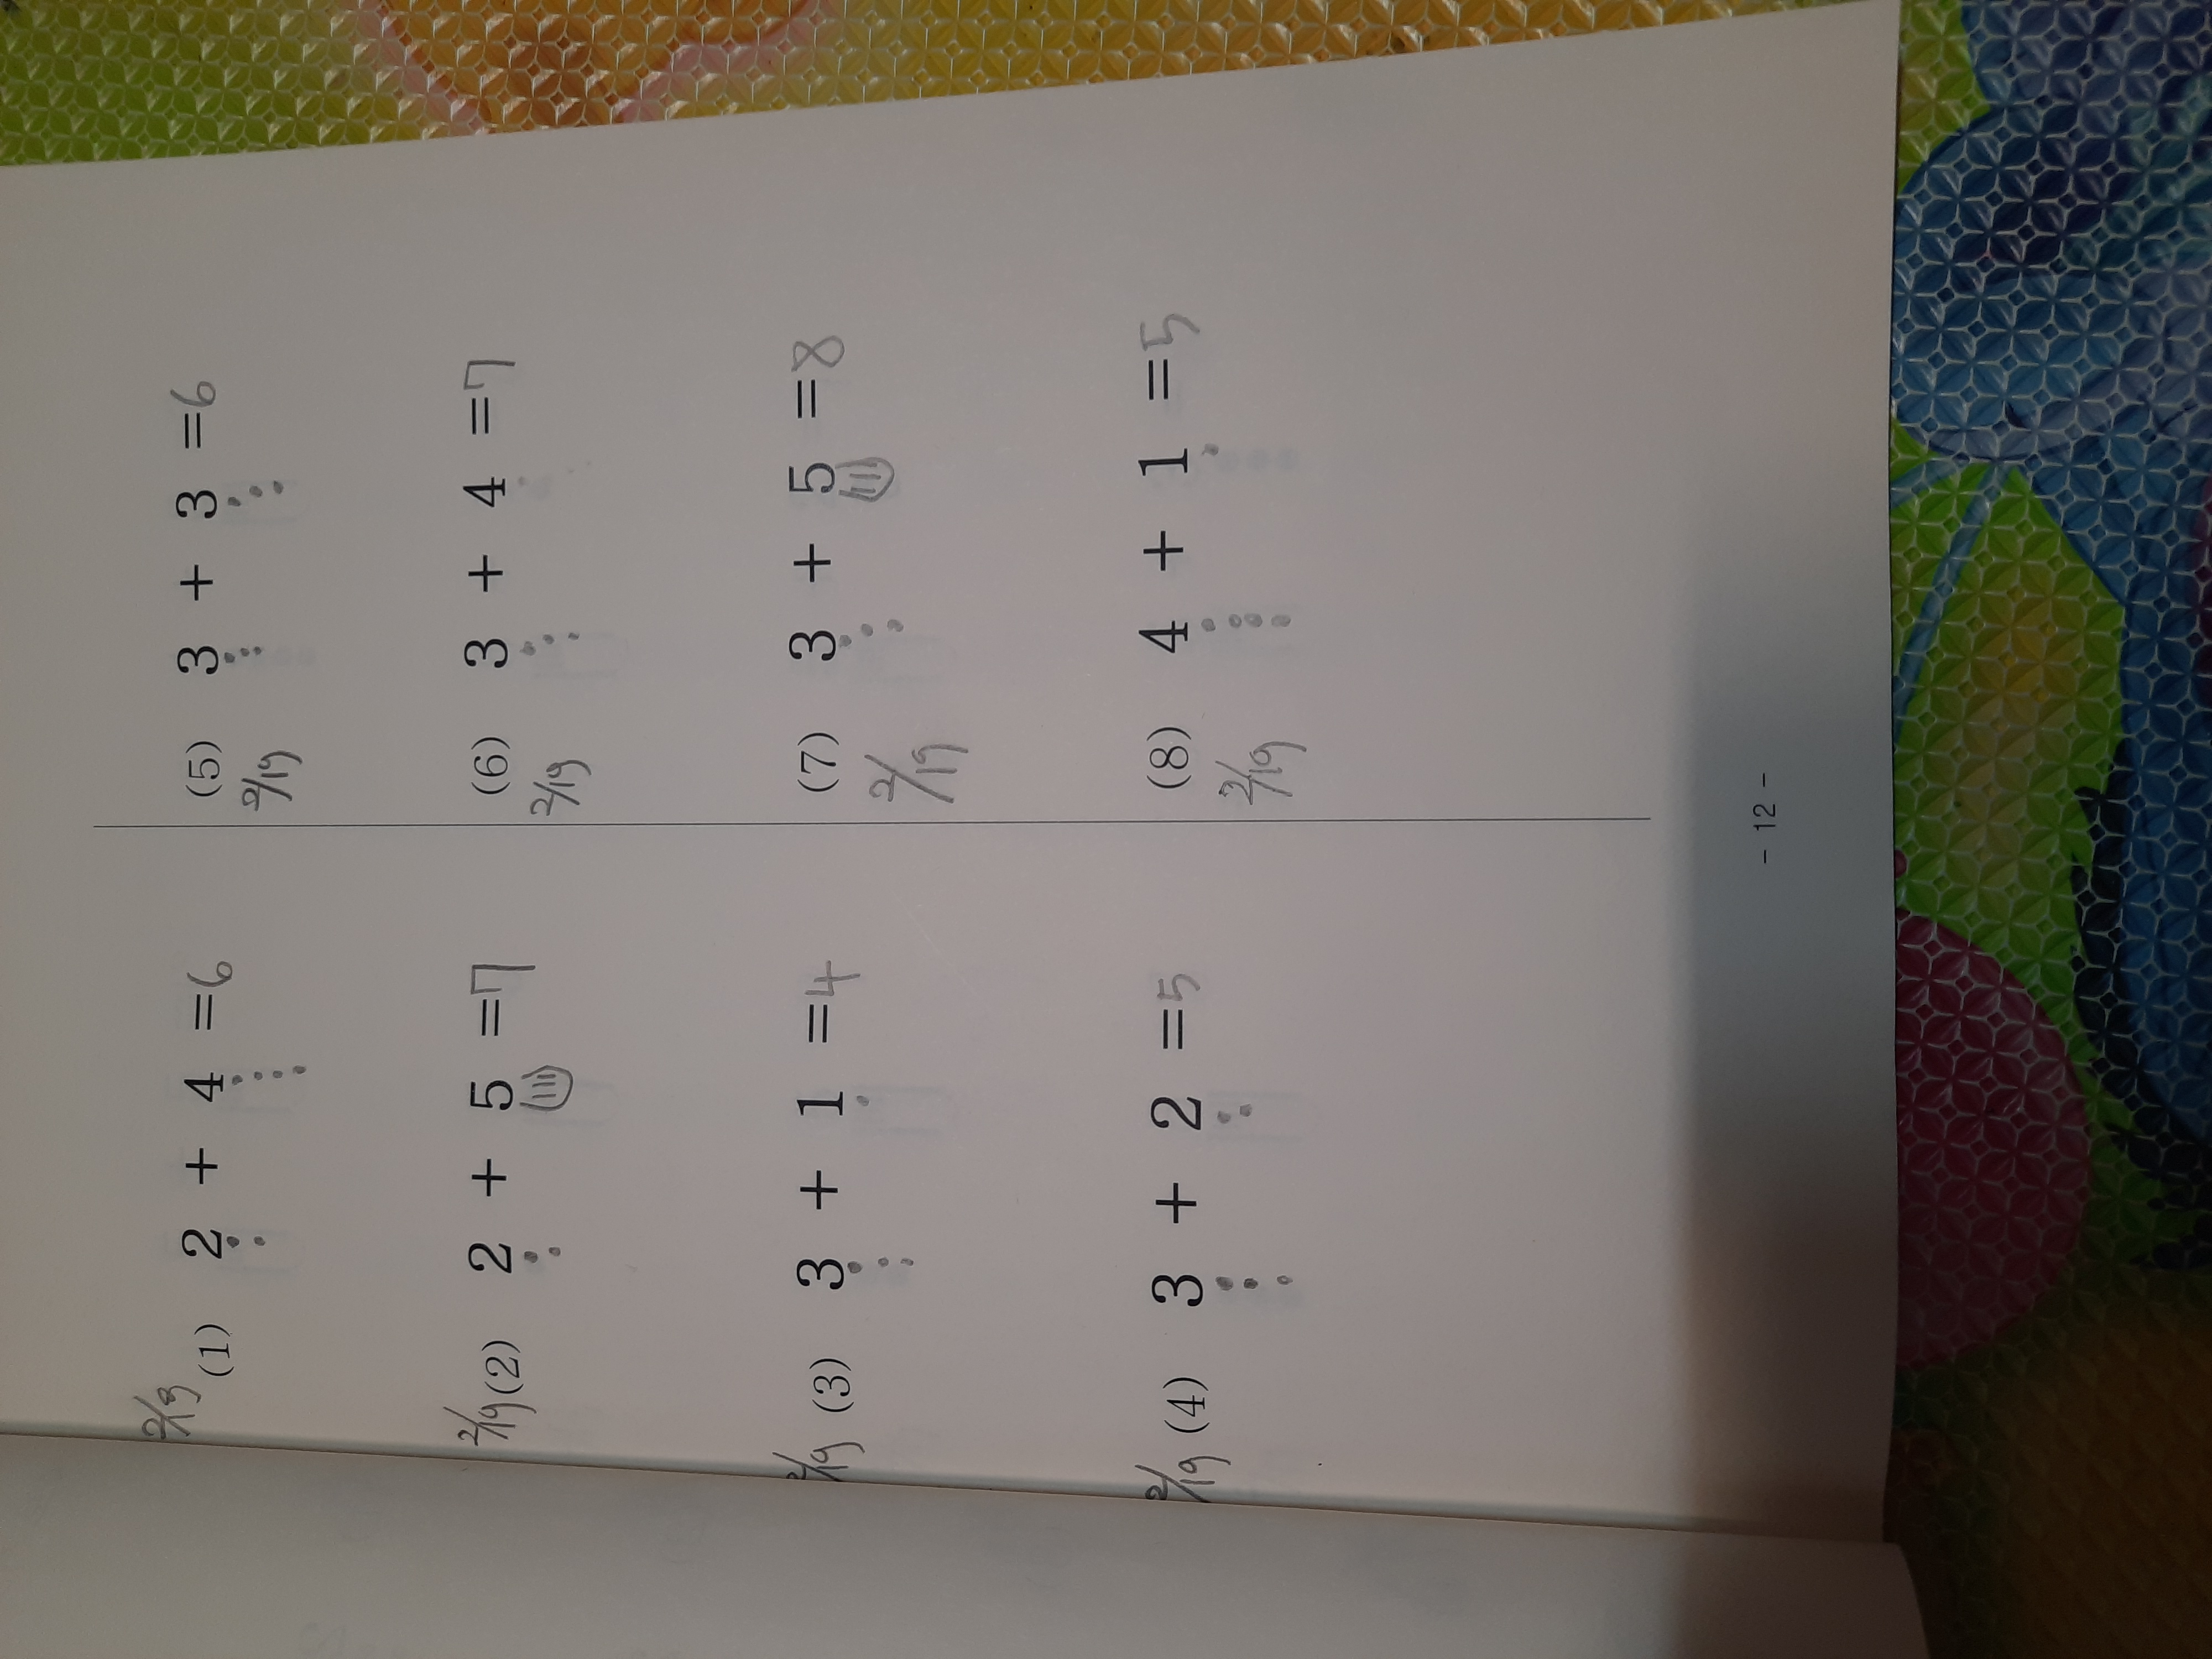 2/19 (1) 2 + 4 = 6
2/19 (2) 2 + 5 = 7
2/19 (3) 3 + 1 = 4
2/19 (4) 3 + 2 = 5
(5) 3 + 3 = 6
2/19
(6) 3 + 4 = 7
2/19
(7) 3 + 5 = 8
2/19
(8) 4 + 1 = 5
2/19
- 12 -